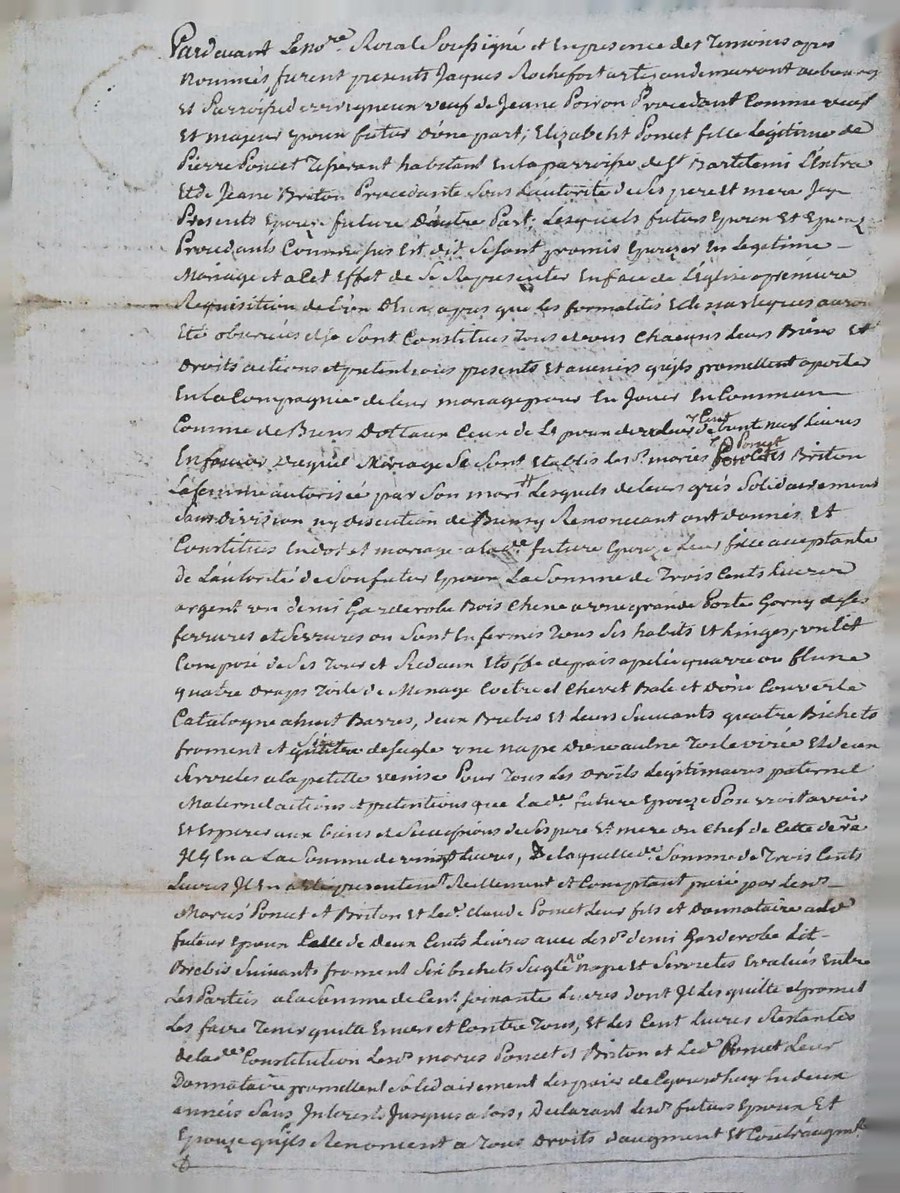 Pardevant Le nore Roial Soussigné et En presence des Temoins apres
Nommés furent presents Jaques Rochefort demeurant au bourg
Et Parroisse veuf de Jeane Poiron Procedant Comme veuf
Et majeur Epoux futur d'une part; Elizabeht Poncet fille Legitime de
Pierre Poncet Tisserant habitant En la parroisse de St Bartelemi L'Estra
Et de Jeane Briton Procedante Sous L'autorité de Ses pere Et mere Icy
Presents Epouze future D'autre Part; Lesquels futurs Epoux Et Epouze
Procedants Comme sus Est dit Se sont promis Epouzer En Legitime
Mariage et a Cet Effet de Se Representer En face de L'Eglise a premiere
Requisition de L'un D'eux, apres que les formalités
Eté observées Se Sont Constitués Tous et uns Chacuns Leurs Biens Et
Droits actions et pretentions presents Et avenirs quils promettent aporter
En La Compagnie de leur mariage pour En Jouir En Commun
Comme de Biens Dottaux Ceux de L'Epoux de valeur de Cent neuf Livres
En faveur Duquel Mariage Se Sont Etablis les d. mariés Poncet Briton
La femme autorisée par Son mari Lesquels de leurs grés Solidairement
Sans division ny discution de Biens y Renoncant ont donnés Et
Constitués En dot et mariage a lade future Epouze Leur fille acceptante
De L'autorité de Son futur Epoux La Somme de Trois Cents Livres
argent un demi Garderobe Bois Chene a une grande Porte Garny de Ses
ferrures et Serrures ou Sont Enfermés Tous Ses habits Et Linges, un Lit
Composé de Ses Tour et
quatre Draps Toile de Menage Coetre et Chevet Bale et D'une Couverte
Catalogne a huit Barres, deux Brebis Et Leurs Suivants quatre Bichets
froment et Six de Segle une nape D'une aulne Toile virée Et deux
Serviettes a la petitte venise Pour Tous Les Droits Legitimaires paternel
Maternel actions Et pretentions que La de future Epouze Pourroit avoir
Et Esperer aux biens et Successions de Ses pere Et mere du Chef de Cette dere
Il y En a La Somme de vingt Livres, De laquelle de Somme de Trois Cents
Livres Il En a Eté presentemt Reellement et Comptant paié par Les ds
Mariés Poncet et Briton Et Led. Claude Poncet Leur fils et Donnataire audt
futur Epoux Celle de Deux Cents Livres avec Lesd. demi Garderobe Lit
Brebis Suivants froment Six bichets Segle nape Et Serviettes Evalués Entre
Les Parties a la Somme de Cent soixante Livres dont Il Les quitte et promet
Les faire Tenir quitte Envers et Contre Tous, Et Les Cent Livres Restantes
De lade Constitution Les ds mariés Poncet et Briton et Led. Poncet Leur
Donnataire promettent Solidairement Les paier de En deux
années Sans Interets Jusques a lors, Declarant Les ds futurs Epoux Et
Epouze quils Renoncent a Tous Droits d'augment Et Contr'augmt